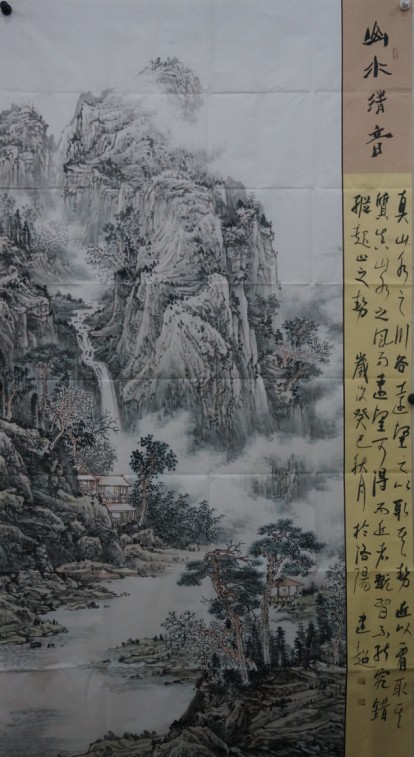 山水清音
真山水之川谷遠望之以取其勢近以看取其
質真山水之風雨遠望可得而近者翫習不能究錯
縱起止之勢 歲次癸巳秋月於洛陽 建超